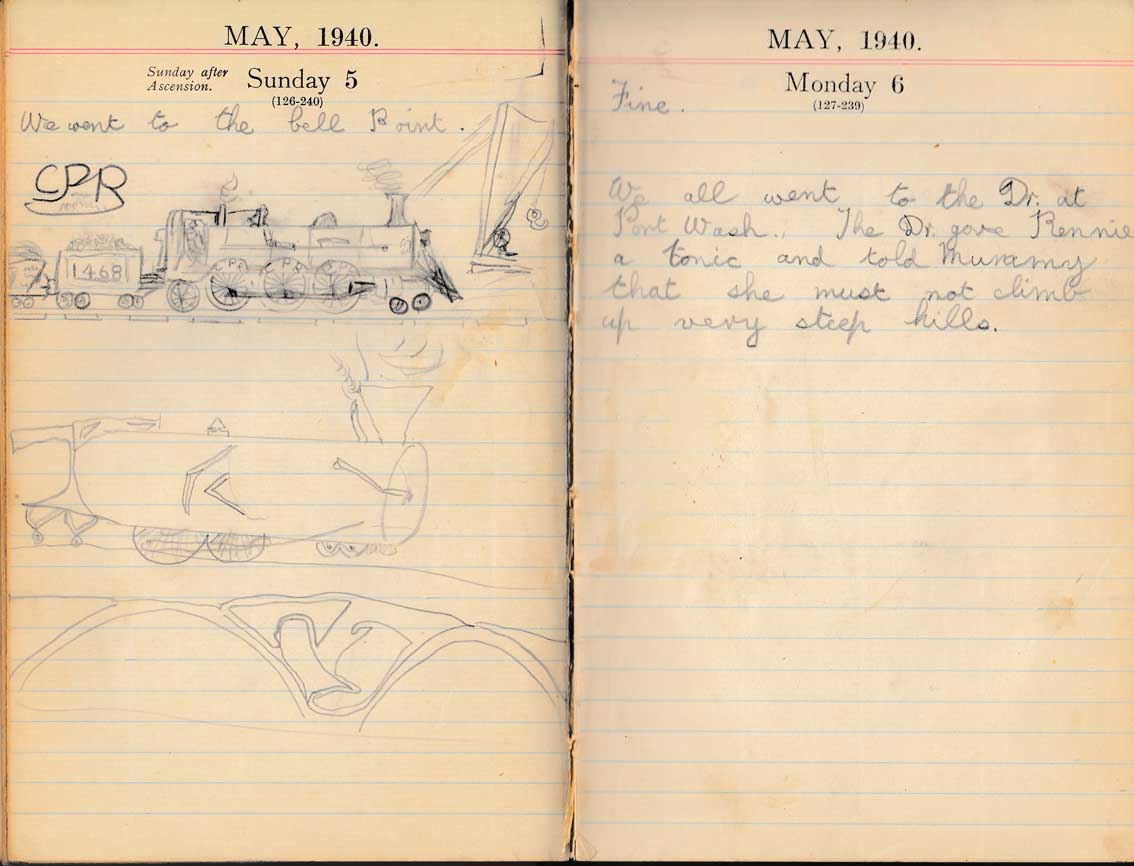 MAY, 1940.
Sunday after
Ascension.
Sunday 5
(126-240)
We went to the bell Point.
CPR
1468
C P R
C P R
MAY, 1940.
Monday 6
(127-239)
Fine.
We all went to the Dr. at
Port Wash. The Dr. gave Rennie
a tonic and told Mummy
that she must not climb
up very steep hills.